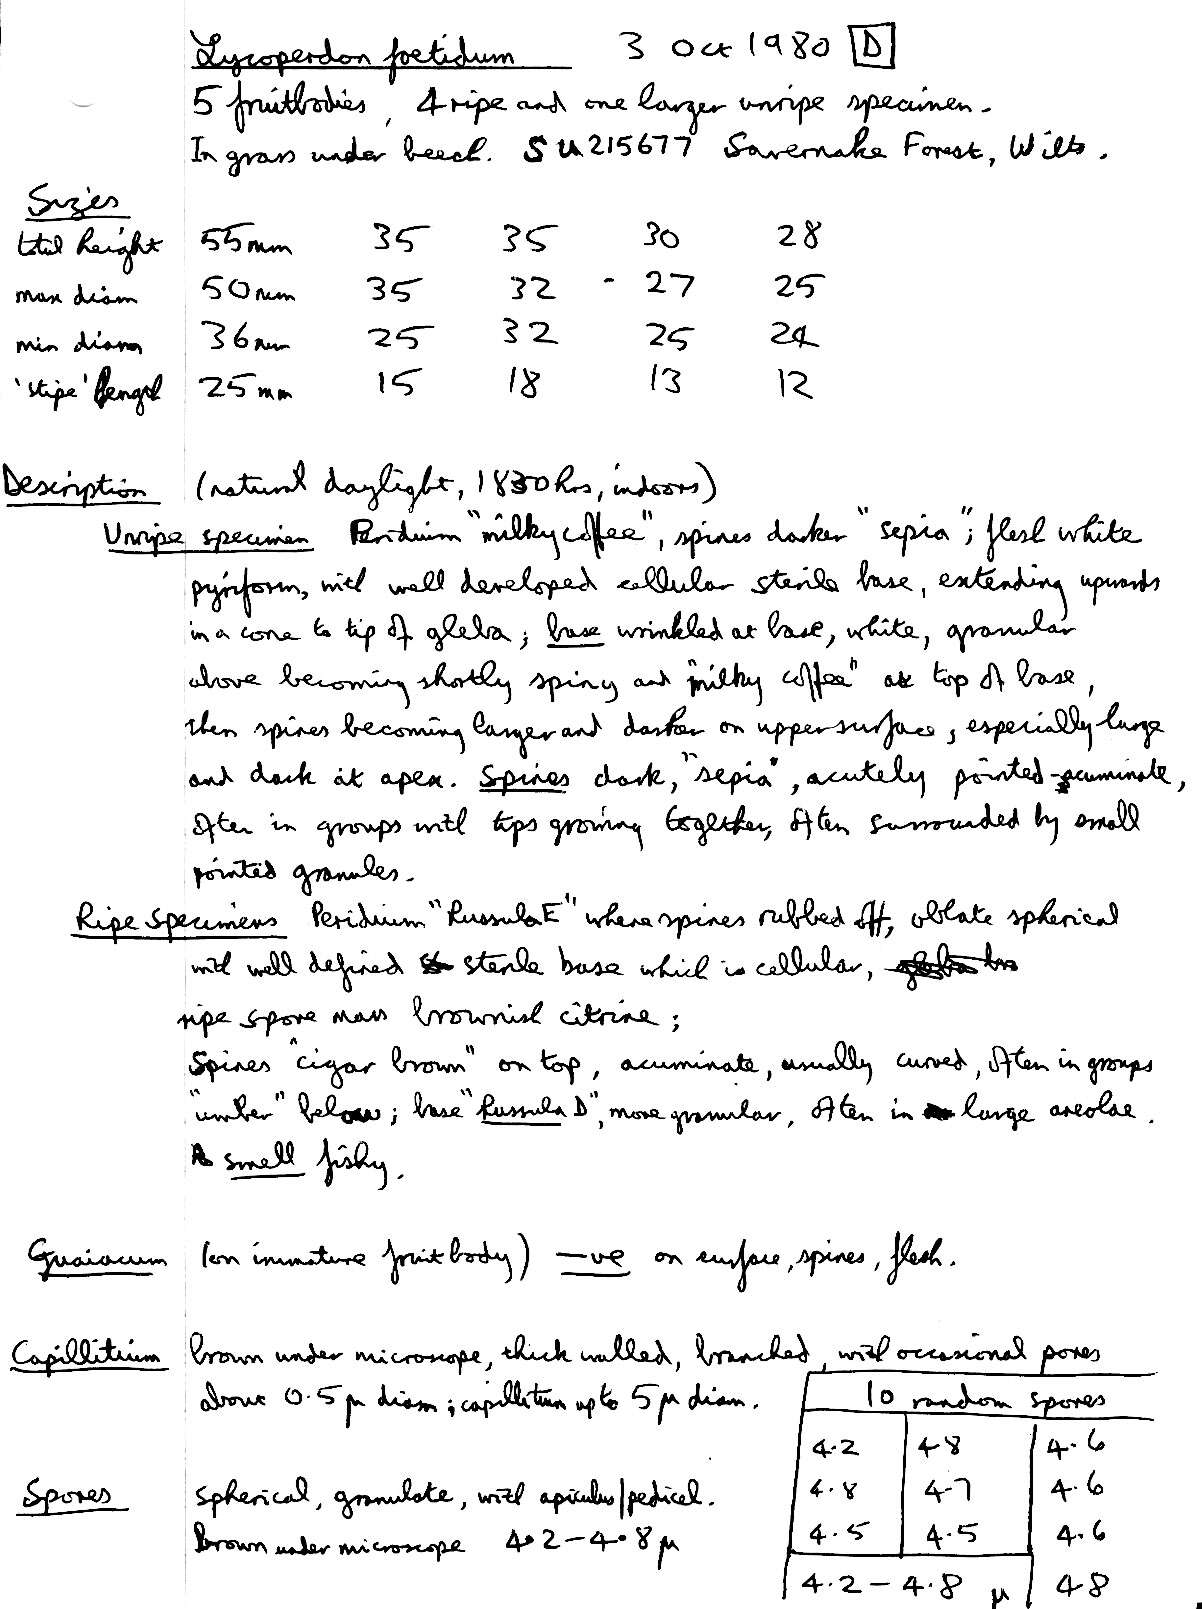 Lycoperdon foetidum 3 Oct 1980 D
5 fruitbodies, 4 ripe and one larger unripe specimen.
In grass under beech. SU215677 Savernake Forest, Wilts.
Sizes
total height 55mm 35 35 30 28
max diam 50mm 35 32 27 25
min diam 36mm 25 32 25 24
'stipe' length 25mm 15 18 13 12
Description (natural daylight, 1830hrs, indoors)
Unripe specimen Peridium "milky coffee", spines darker "sepia"; flesh white
pyriform, with well developed cellular sterile base, extending upwards
in a cone to tip of gleba; base wrinkled at base, white, granular
above becoming shortly spiny and "milky coffee" at top of base,
then spines becoming larger and darker on upper surface, especially large
and dark at apex. Spines dark, "sepia", acutely pointed-acuminate,
often in groups with tips growing together, often surrounded by small
pointed granules.
Ripe Specimens Peridium "Russula E" where spines rubbed off, oblate spherical
with well defined sterile base which is cellular,
ripe spore mass brownish citrine;
Spines "cigar brown" on top, acuminate, usually curved, often in groups
"umber" below; base "Russula D", more granular, often in large areolae.
smell fishy.
Guaiacum (on immature fruitbody) -ve on surface, spines, flesh.
Capillitium brown under microscope, thick walled, branched, with occasional pores
about 0.5 µ diam; capillitium up to 5 µ diam.
10 random spores
4.2 4.8 4.6
4.8 4.7 4.6
4.5 4.5 4.6
4.2-4.8 µ 4.8
Spores spherical, granulate, with apiculus/pedicel.
Brown under microscope 4.2-4.8 µ